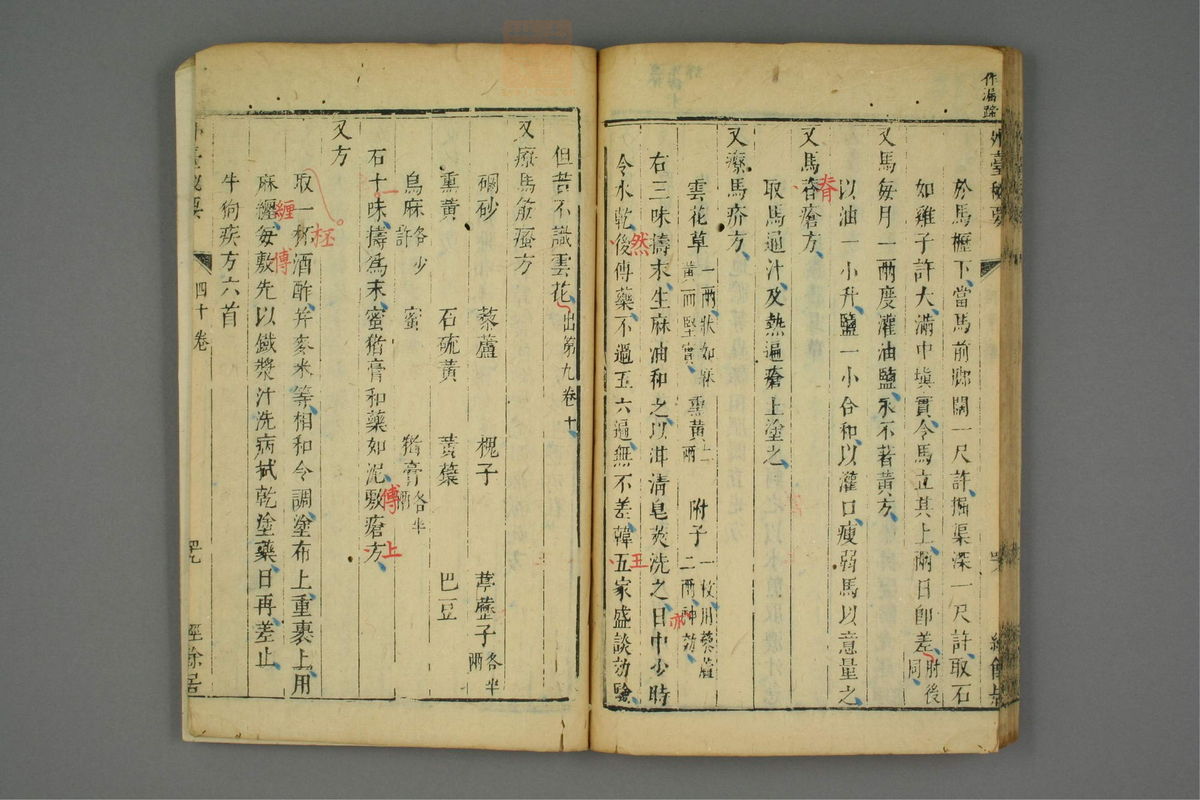 作漏蹄
外臺秘要
於馬櫪下當馬前脚闊一尺許掘渠深一尺許取石
如雞子許大滿中塡實令馬立其上兩日卽差肘後同
又馬每月一兩度灌油鹽永不著黃方
以油一小升鹽一小合和以灌口瘦弱馬以意量之
又馬脊瘡方
脊
取馬通汁及熱遍瘡上塗之
又療馬疥方
雲花草一兩狀如麻黃而堅實 熏黃二兩 附子一枚用藜蘆二兩神効
亦
右三味擣末生麻油和之以泔清皂莢洗之日中少時
令水乾後傅藥不過五六遍無不差韓五家盛談効驗
然
王
但苦不識雲花出第九卷十
又療馬筋瘙方
硇砂 藜蘆 槐子 葶藶子各半兩
熏黃 石硫黃 蕢蘗 巴豆
烏麻各少許 蜜 猪膏各半兩
石十味擣爲末蜜猪膏和藥如泥敷瘡方
一
傅
上
又方
取一杯酒酢幷麥米等相和令調塗布上重裹上用
坯
麻纏每敷先以鐵漿汁洗病拭乾塗藥日再差止
纒
傅
牛狗疾方六首
外臺秘要
四十卷
經餘居